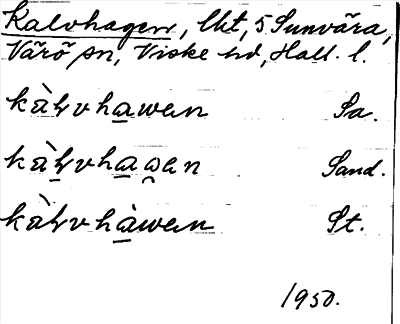 Kalvhagen, lht, 5 Sunvära,
Värö sn, Viske hd, Hall. l.
kàɫvhawan Sa.
kàɫvhawan Sand.
kàɫvhàwan St.
1950.